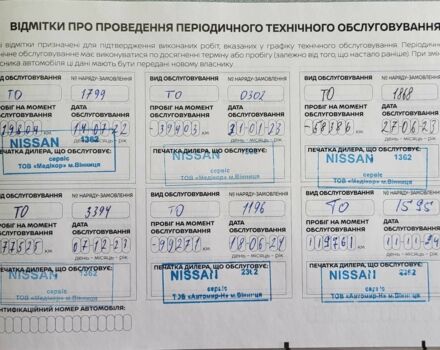 ВІДМІТКИ ПРО ПРОВЕДЕННЯ ПЕРІОДИЧНОГО ТЕХНІЧНОГО ОБСЛУГОВУВАННЯ
відмітки призначені для підтвердження виконаних робіт, вказаних у графіку технічного обслуговування. Періодичне
обслуговування має виконуватися по досягненні терміну або пробігу (залежно від того, що настало раніше). При зміні
власника автомобіля ці дані мають бути передані новому власнику.
ВИД ОБСЛУГОВУВАННЯ № НАРЯДУ-ЗАМОВЛЕННЯ ВИД ОБСЛУГОВУВАННЯ № НАРЯДУ-ЗАМОВЛЕННЯ ВИД ОБСЛУГОВУВАННЯ № НАРЯДУ-ЗАМОВЛЕННЯ
ТО 1799 ТО 0302 ТО 1868
ПРОБІГ НА МОМЕНТ ОБСЛУГОВУВАННЯ ДАТА ОБСЛУГОВУВАННЯ ПРОБІГ НА МОМЕНТ ОБСЛУГОВУВАННЯ ДАТА ОБСЛУГОВУВАННЯ ПРОБІГ НА МОМЕНТ ОБСЛУГОВУВАННЯ ДАТА ОБСЛУГОВУВАННЯ
14.07.22 39403 км 31.01.23 58386 км 27.06.23
ПЕЧАТКА ДИЛЕРА, ЩО ОБСЛУГОВУЄ: ПЕЧАТКА ДИЛЕРА, ЩО ОБСЛУГОВУЄ: ПЕЧАТКА ДИЛЕРА, ЩО ОБСЛУГОВУЄ:
NISSAN 1362 NISSAN NISSAN 1362
сервіс сервіс сервіс
ТОВ «Медікор» м.Вінниця ТОВ «Медікор» м.Вінниця ТОВ «Медікор» м.Вінниця
ВИД ОБСЛУГОВУВАННЯ № НАРЯДУ-ЗАМОВЛЕННЯ ВИД ОБСЛУГОВУВАННЯ № НАРЯДУ-ЗАМОВЛЕННЯ ВИД ОБСЛУГОВУВАННЯ № НАРЯДУ-ЗАМОВЛЕННЯ
ТО 3394 ТО 1196 ТО 1595
ПРОБІГ НА МОМЕНТ ОБСЛУГОВУВАННЯ ДАТА ОБСЛУГОВУВАННЯ ПРОБІГ НА МОМЕНТ ОБСЛУГОВУВАННЯ ДАТА ОБСЛУГОВУВАННЯ ПРОБІГ НА МОМЕНТ ОБСЛУГОВУВАННЯ ДАТА ОБСЛУГОВУВАННЯ
77525 км 07.12.23 99271 км 18.06.24 119761 км
день – місяць – рік день – місяць – рік день – місяць – рік
ПЕЧАТКА ДИЛЕРА, ЩО ОБСЛУГОВУЄ: ПЕЧАТКА ДИЛЕРА, ЩО ОБСЛУГОВУЄ: ПЕЧАТКА ДИЛЕРА, ЩО ОБСЛУГОВУЄ:
NISSAN 1362 NISSAN 2362 NISSAN 2362
сервіс сервіс сервіс
ТОВ «Медікор» м.Вінниця ТОВ «Автомир-Н» м.Вінниця ТОВ «Автомир-Н» м.Вінниця
ІДЕНТИФІКАЦІЙНИЙ НОМЕР АВТОМОБІЛЯ: